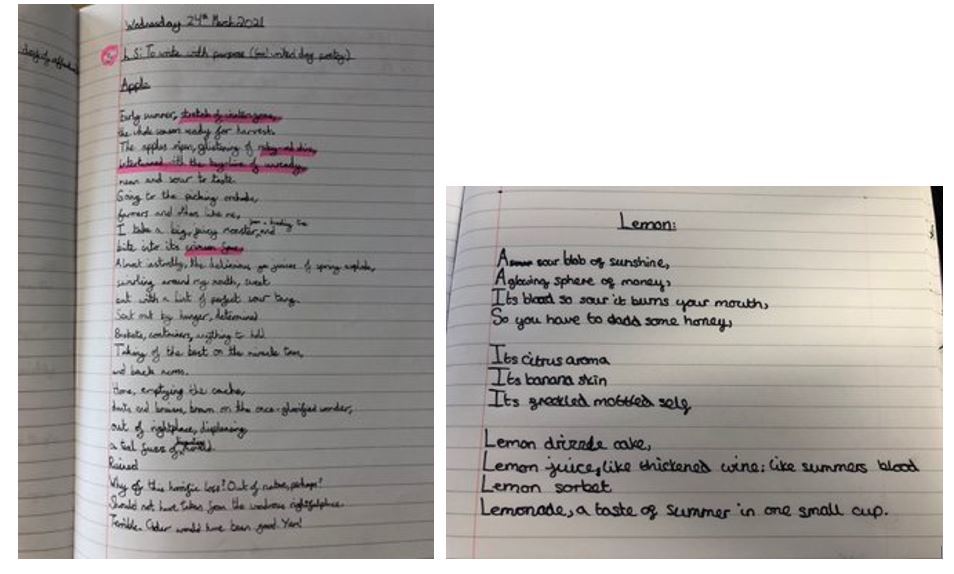 Wednesday 24th March 2021
L.S: To write with purpose ( day poetry)
Apple
Early summer, stretch of
the whole season ready for harvest.
The apples ripen, glistening of ruby-red
intertwined with the of unready,
and sour to taste.
Going to the picking
farmers and like me,
I take a big, juicy monster, and
bite into its crimson
Almost instantly, the juices of spring explode,
swirling around my mouth, sweet
with a hint of perfect sour tang.
out by hunger, determined
Baskets, containers, anything to hold
Taking of the best on the tree,
and back
Home, emptying the
and bruises, brown on the once-glorified wonder,
out of rightplace, displeasing
a of
Ruined
Why of this horrific loss? Out of nature, perhaps?
Should not have taken from the wondrous rightfulplace.
Terrible. Cider would have been good. Yum!
Lemon:
A sour blob of sunshine,
A glowing sphere of money,
Its blood so sour it burns your mouth,
So you have to dadd some honey,
Its citrus aroma
Its banana skin
Its mottled self
Lemon drizzle cake,
Lemon juice, like thickened wine: like summers blood
Lemon sorbet
Lemonade, a taste of summer in one small cup.